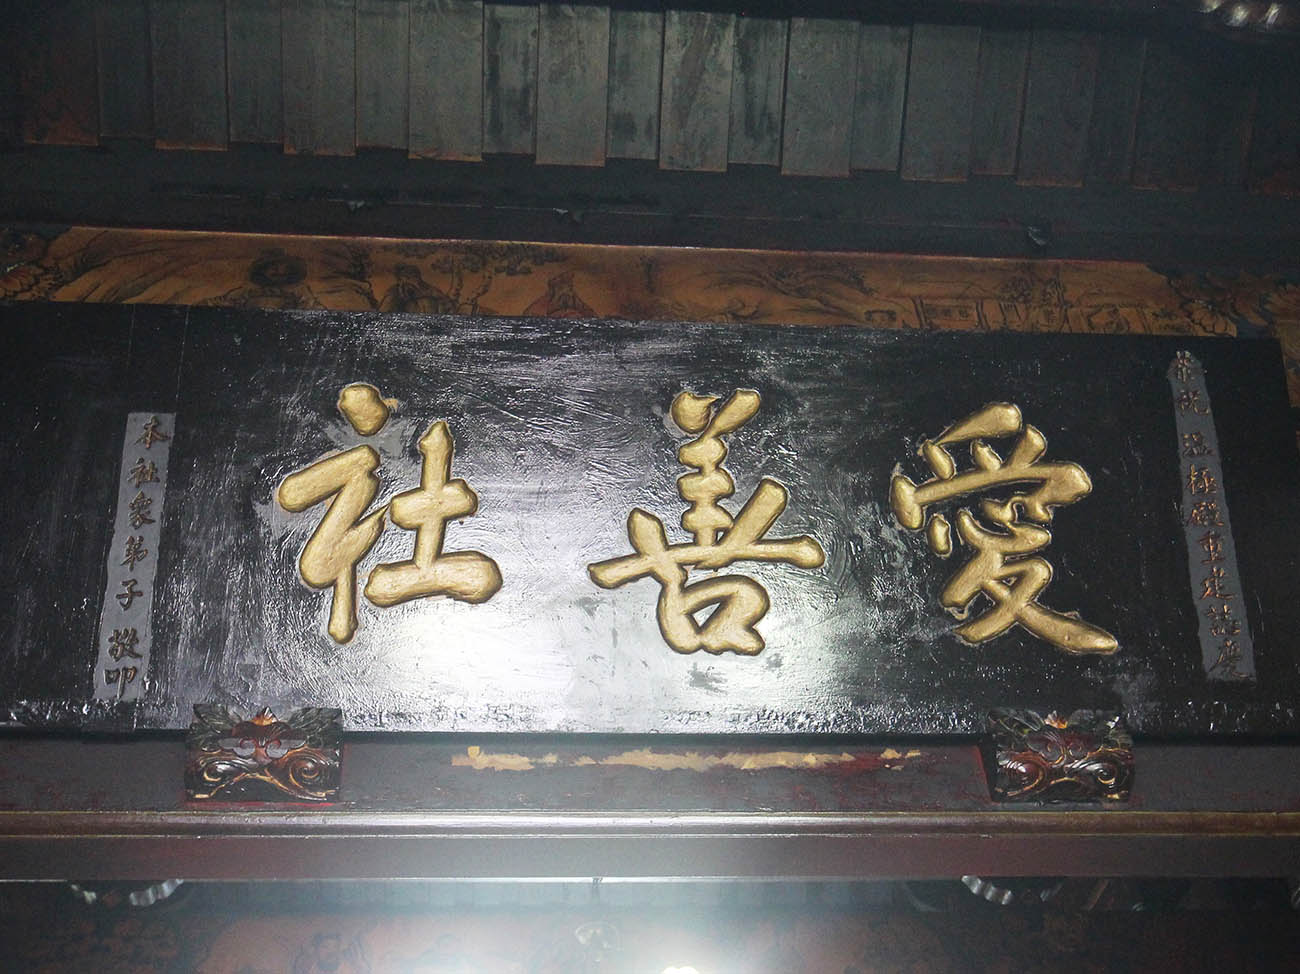 恭祝孟極殿重建誌慶
愛善社
本社眾弟子敬叩